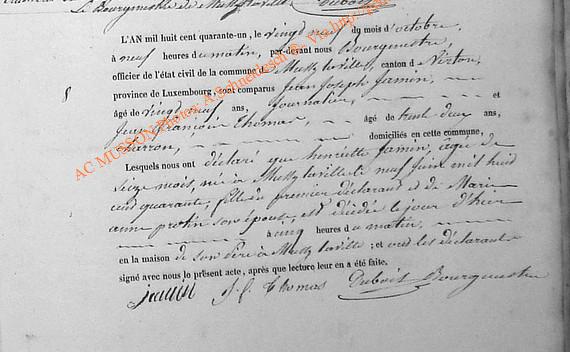 Le Bourgmestre de Mussy la ville, Dubois
L'AN mil huit cent quarante-un, le vingt neuf du mois d'octobre,
à neuf heures du matin, par-devant nous Bourgmestre,
officier de l'état civil de la commune de Mussy la ville, canton d Virton,
province de Luxembourg, sont comparus Jean Joseph Jamin,
âgé de vingt neuf ans, Journalier, et
Jean François Thomas, âgé de trente deux ans,
charron, domiciliés en cette commune,
Lesquels nous ont déclaré que henriette Jamin, âgée de
seize mois, née à Mussy la ville le neuf Juin mil huit
cent quarante, fille du premier déclarant et de Marie
anne protin son épouse, est décédée le jour d'hier
à cinq heures du matin,
en la maison de son père à Mussy la ville; et ont les déclarants
signé avec nous le présent acte, après que lecture leur en a été faite.
jamin J. f. Thomas Dubois Bourgmestre
AC MUSSON Photos: A Schneidesch ©- Via http